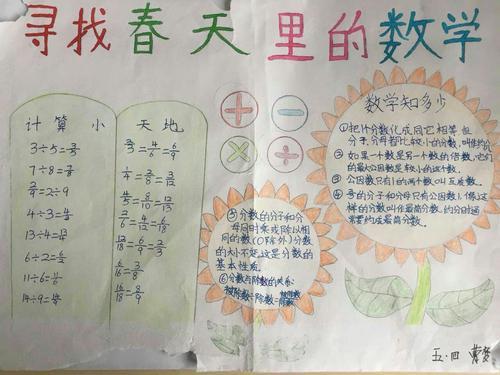 寻找春天里的数学
计算小天地
3÷5=3/5
7÷8=7/8
2/9=2÷9
4÷3=4/3
13÷4=13/4
6÷2=6/2
11÷6=11/6
14÷9=14/9
2/3=4/6=6/9
1/4=2/8=3/12
4/5=8/10=12/15
2/6=4/12=6/18
12/18=6/9=2/3
6/16=3/8
16/18=8/9
+ −
× ÷
数学知多少
①把1个分数化成同它相等但
分子、分母都比较小的分数,叫做约分
②如果一个数是另一个数的倍数,它们
的最大公因数是较小的这个数。
③公因数只有1的两个数叫互质数。
的分子和分母只有公因数1,像这
样的分数叫作最简分数。约分时通
常要约成最简分数。
⑤分数的分子和分
母同时乘或除以相
同的数(0除外)分数
的大小不变,这是分数的
基本性质。
⑥分数与除数的关系:
被除数÷除数=被除数/除数
五·四